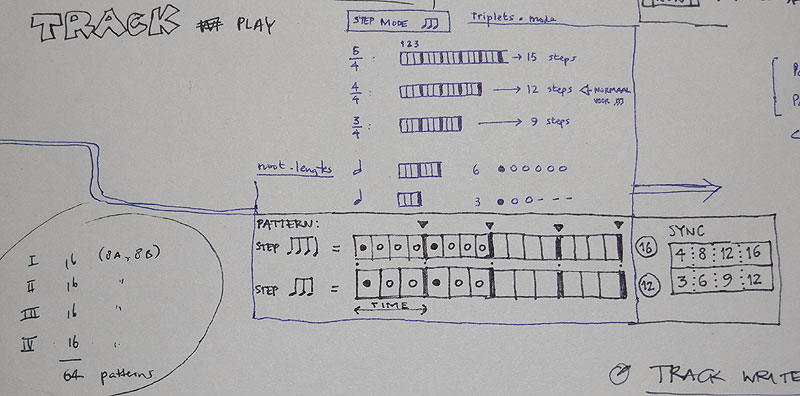 TRACK PLAY
STEP MODE
Triplets-mode
1 2 3
5/4 : → 15 steps
4/4 : → 12 steps NORMAAL VOOR
3/4 : → 9 steps
6
3
PATTERN:
STEP =
STEP =
TIME
SYNC
16 4 8 12 16
12 3 6 9 12
I 16 (8A, 8B)
II 16 "
III 16 "
IV 16 "
64 patterns
TRACK WRITE